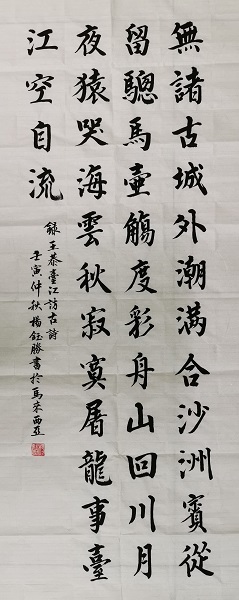 無諸古城外潮满合沙洲賓從
留驄馬壷觴度彩舟山回川月
夜猿哭海雲秋寂寞屠龍事臺
江空自流
録王恭臺江訪古詩
壬寅仲秋楊鈺勝書於馬来西亚